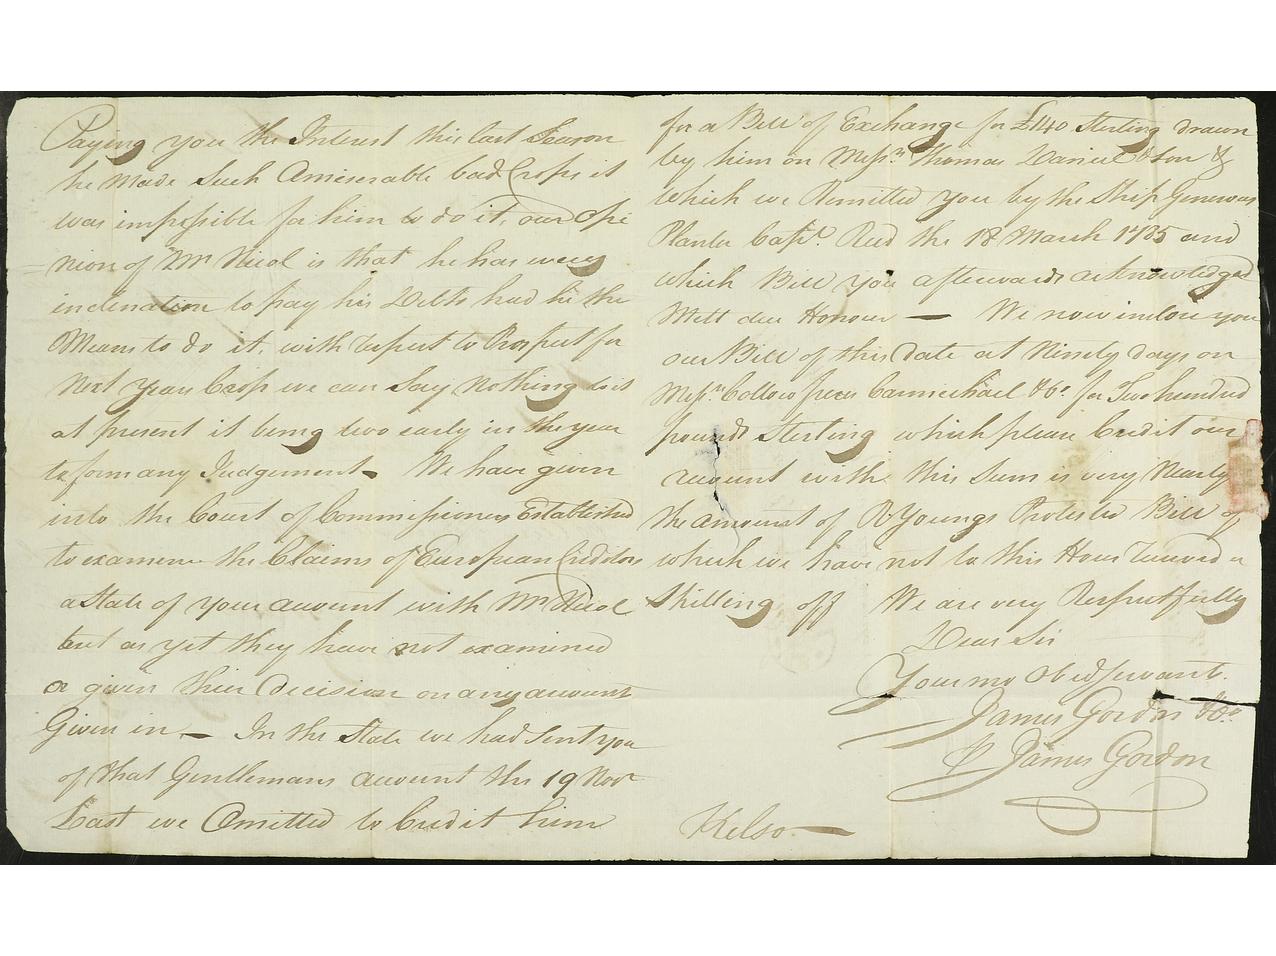 Paying you the Interest this last Season
he Made Such A miserable bad Crops it
was impossible for him to do it, our Opi
nion of Mr Nicol is that he has every
inclination to pay his Debts had he the
Means to do it, with respect to Prospect for
Next years Crop we can Say Nothing as it
at present it being two early in the year
to form any Judgement - We have given
into the Court of Commissioners Established
to examine the Claims of European Creditors
a State of your account with Mr Nicol
but as yet they have not examined
or given their Decision on any account
Given in - In the State we had Sent you
of that Gentlemans account the 19 Novr
Last we Omitted to Credit him
for a Bill of Exchange for £140 Sterling drawn
by him on Messrs Thomas Daniel & Son &
which we Remitted you by the Ship Generous
Planter Capt. Reed the 18 March 1785 and
which Bill you afterwards acknowledged
Mett due Honour - We now inclose you
our Bill of this Date at Ninety days on
Messrs Collow freres Carmichael & Co. for Two hundred
pounds Sterling which please Credit our
account with this Sum is very Nearly
the amount of R Youngs Protested Bill of
which we have not to this Hour received a
Shilling off We are very Respectfully
Dear Sir
Your mo Obed Servant.
James Gordon & Co.
P James Gordon
Kelso -